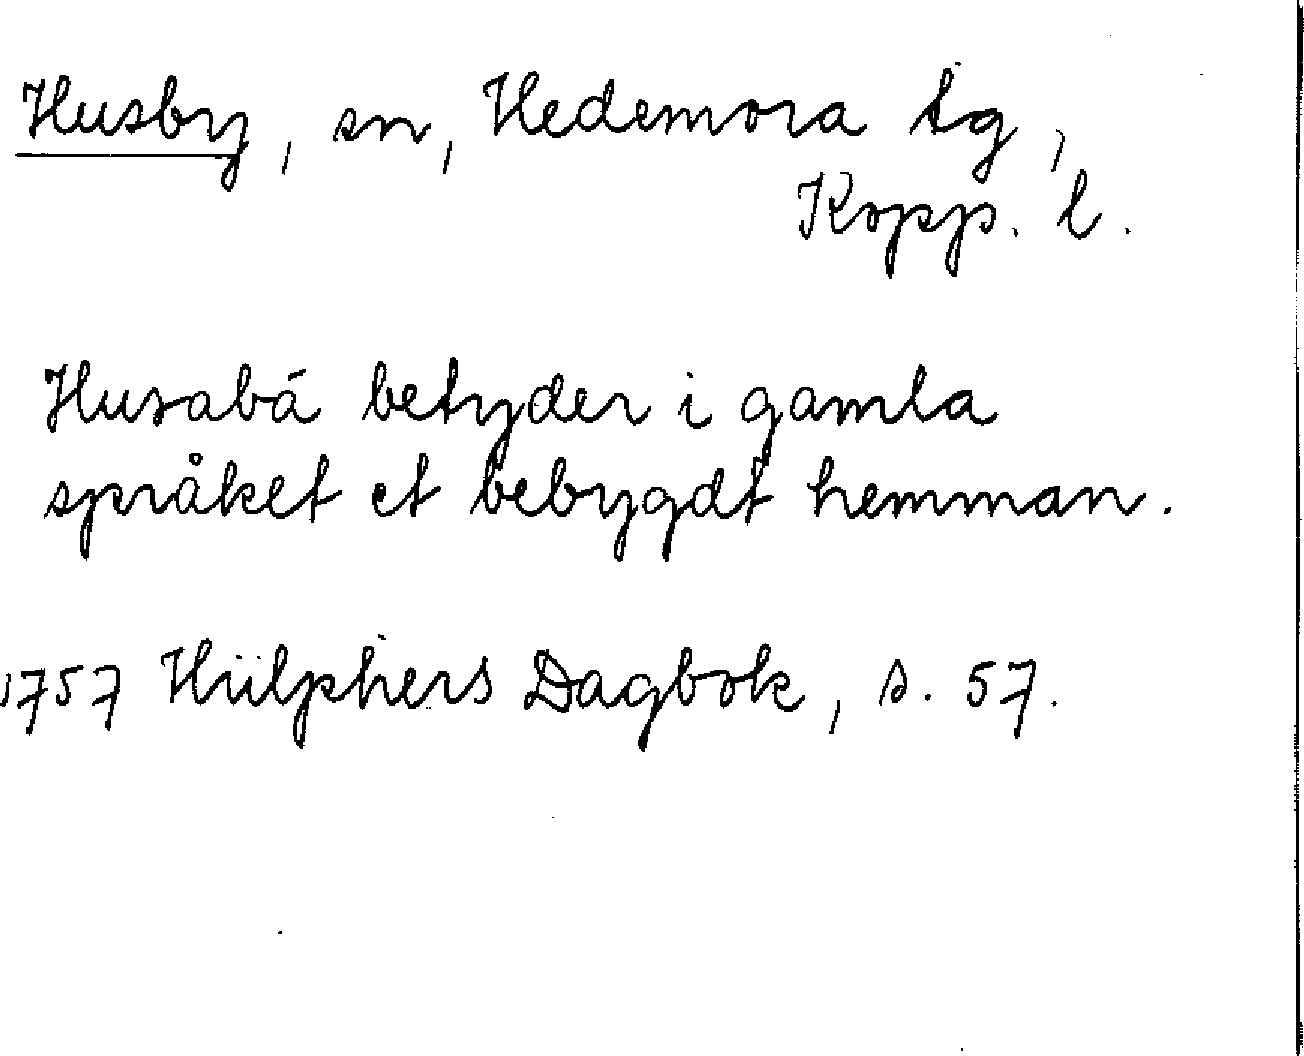 Husby, sn, Hedemora tg,
Kopp. l.
Husabá betyder i gamla
språket et bebygdt hemman.
1757 Hülphers Dagbok, s. 57.